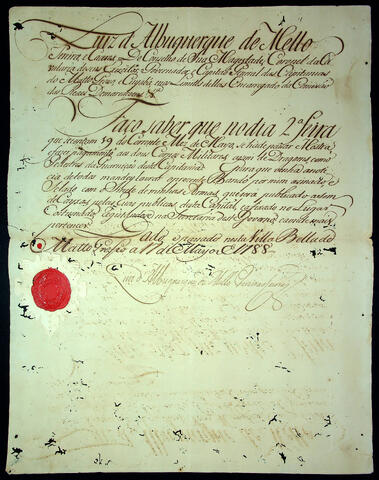 Luiz d Albuquerque de Mello
Pereira e Caceres, Do Conselho de Sua Magestade, Coronel da Ca-
valaria dos seus Exercitos, Governador, e Capitaõ General das Capitanias
do Matto Grosso, e Cuyabá, seus Limites dellas Encarregado da Comissaõ
das Reaes Demarcaçoens &.ª
Faço saber, que no dia 2.ª feira
que secontam 19 do Corrente Mez de Mayo, se hade passar Mostra
e fazer pagamento aos dous Corpos Militares assim de Dragoens como
Pedestres da Guarniçaõ desta Capitania
Para que venha anoti-
cia detodos mandey lavrar o prezente Bando, por mim asinado, e
Selado com o Sello de minhas Armas, que sera publicado a som
de Caxas pelas ruas publicas desta Capital, e afixado no Lugar
Costumado, registandose na Secretaria deste Governo, e onde mais
pertencer
Dado, e passado nesta Villa Bella de
Matto Grosso a 17 de Mayo, de 1788
Luiz d Albuquerque de Mello Pereira Caceres